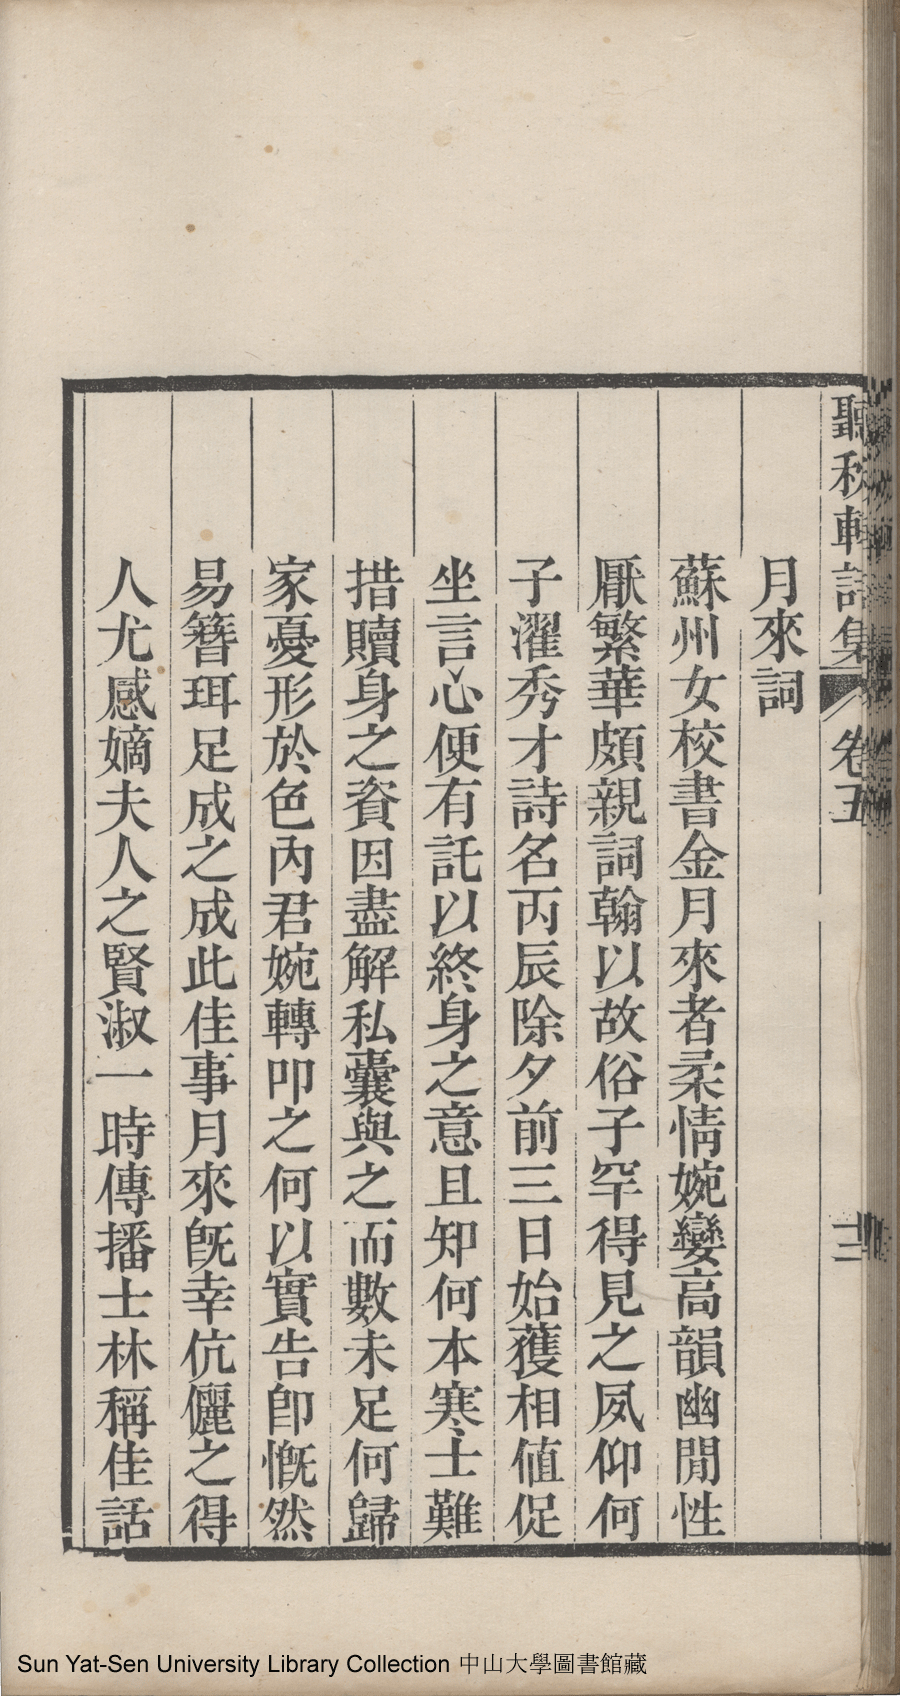 聽秋軒詩集 卷五 十二
月來詞
蘇州女校書金月來者柔情婉孌高韻幽閒性
厭繁華頗親詞翰以故俗子罕得見之夙仰何
子濯秀才詩名丙辰除夕前三日始獲相值促
坐言心便有託以終身之意且知何本寒士難
措贖身之資因盡解私囊與之而數未足何歸
家憂形於色內君婉轉叩之何以實告卽慨然
易簪珥足成之成此佳事月來旣幸伉儷之得
人尤感嫡夫人之賢淑一時傳播士林稱佳話
Sun Yat-Sen University Library Collection 中山大學圖書館藏